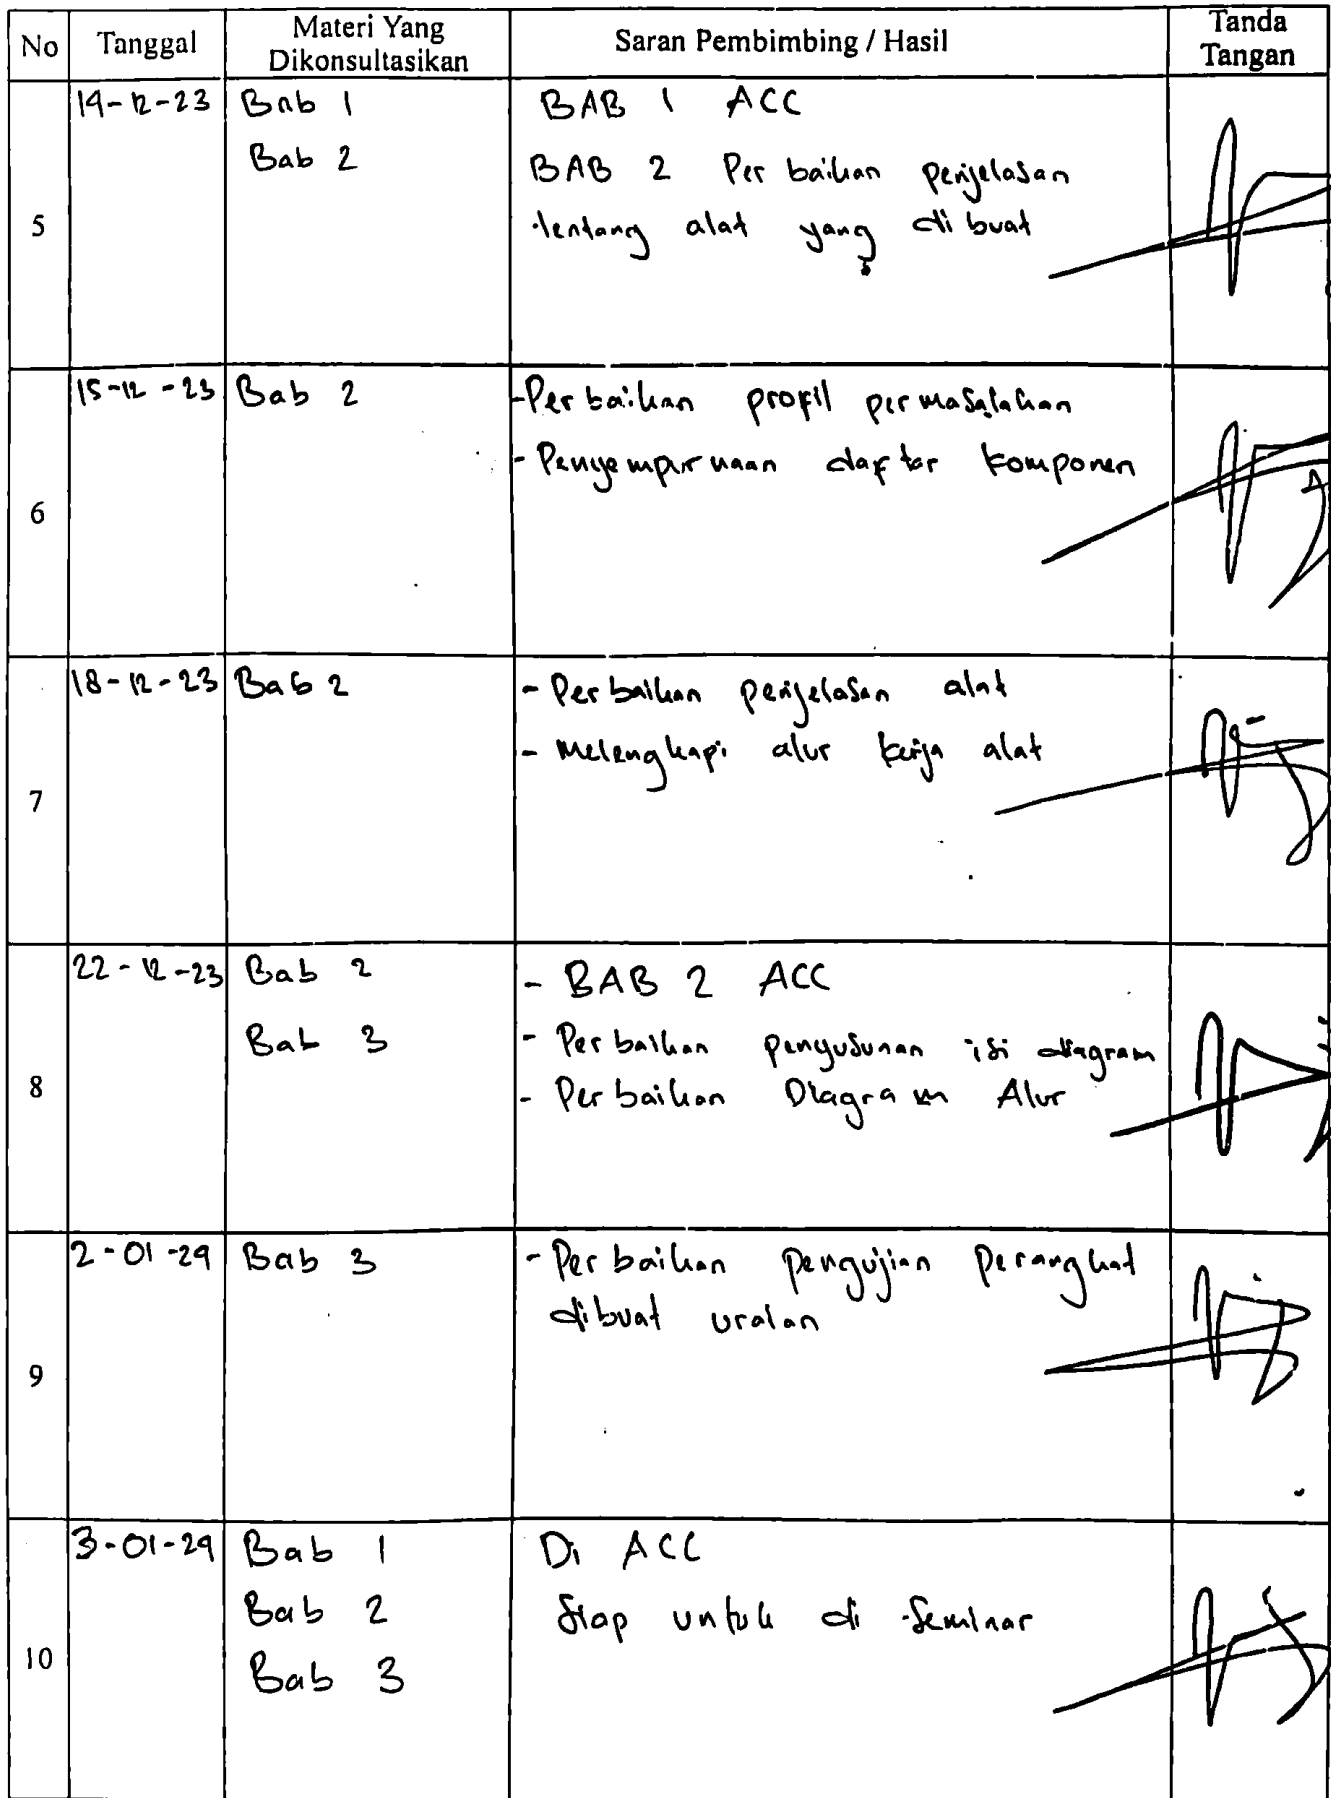 No Tanggal Materi Yang Dikonsultasikan Saran Pembimbing / Hasil Tanda Tangan
5
14-12-23 Bab 1 BAB 1 ACC
Bab 2 BAB 2 Perbaikan penjelasan
tentang alat yang dibuat
6
15-12-23 Bab 2 - Perbaikan profil permasalahan
- Penyempurnaan daftar komponen
7
18-12-23 Bab 2 - Perbaikan penjelasan alat
- Melengkapi alur kerja alat
8
22-12-23 Bab 2 - BAB 2 ACC
Bab 3 - Perbaikan penyusunan isi diagram
- Perbaikan Diagram Alur
9
2-01-24 Bab 3 - Perbaikan pengujian perangkat
dibuat uraian
10
3-01-24 Bab 1 Di ACC
Bab 2 Siap untuk di seminar
Bab 3